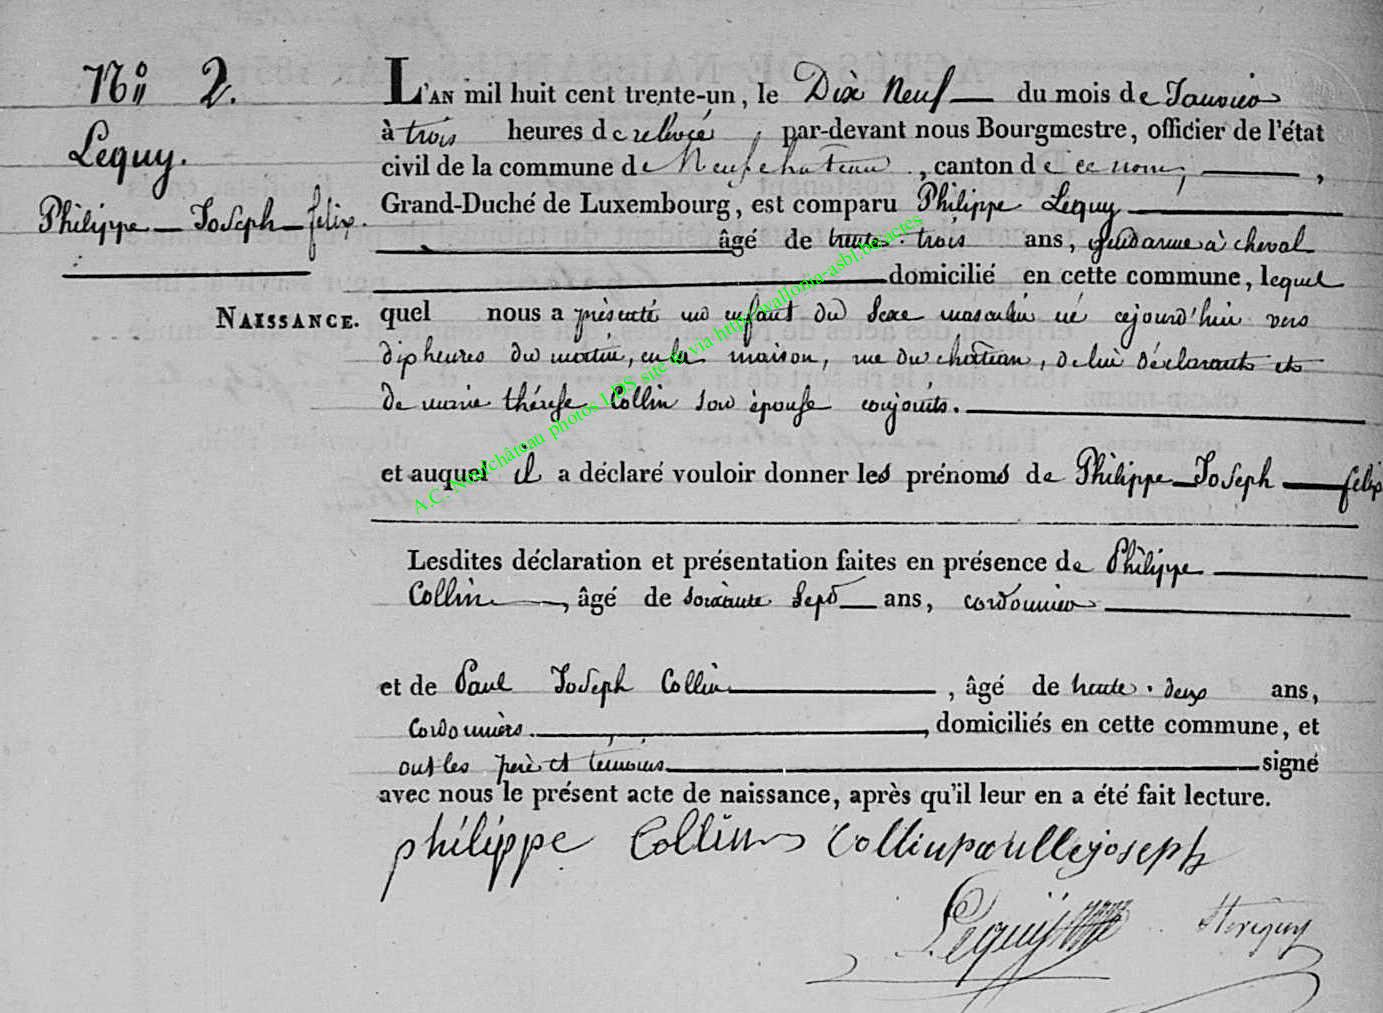 No 2.
Lequy.
Philippe — Joseph — felix.
NAISSANCE.
L'AN mil huit cent trente-un, le Dix Neuf — du mois de Janvier
à trois heures de relevée, par-devant nous Bourgmestre, officier de l'état
civil de la commune de Neufchateau, canton de ce nom,
Grand-Duché de Luxembourg, est comparu Philippe Lequy
âgé de trente-trois ans, gendarme à cheval
domicilié en cette commune, lequel
quel nous a présenté un enfant du sexe masculin né cejourd'hui vers
dix heures du matin, en la maison, rue du chateau, de lui déclarant et
de marie thérèse Collin son épouse conjoints.
et auquel il a déclaré vouloir donner les prénoms de Philippe — Joseph — felix
Lesdites déclaration et présentation faites en présence de Philippe
Collin, âgé de soixante sept ans, cordonnier
et de Paul Joseph Collin, âgé de trente-deux ans,
cordonniers, domiciliés en cette commune, et
ont les père et temoins signé
avec nous le présent acte de naissance, après qu'il leur en a été fait lecture.
philippe Collin Collin paulle joseph
Lequy
A.C. Neufchâteau photos LDS site le via http://wallonia-asbl.be/actes